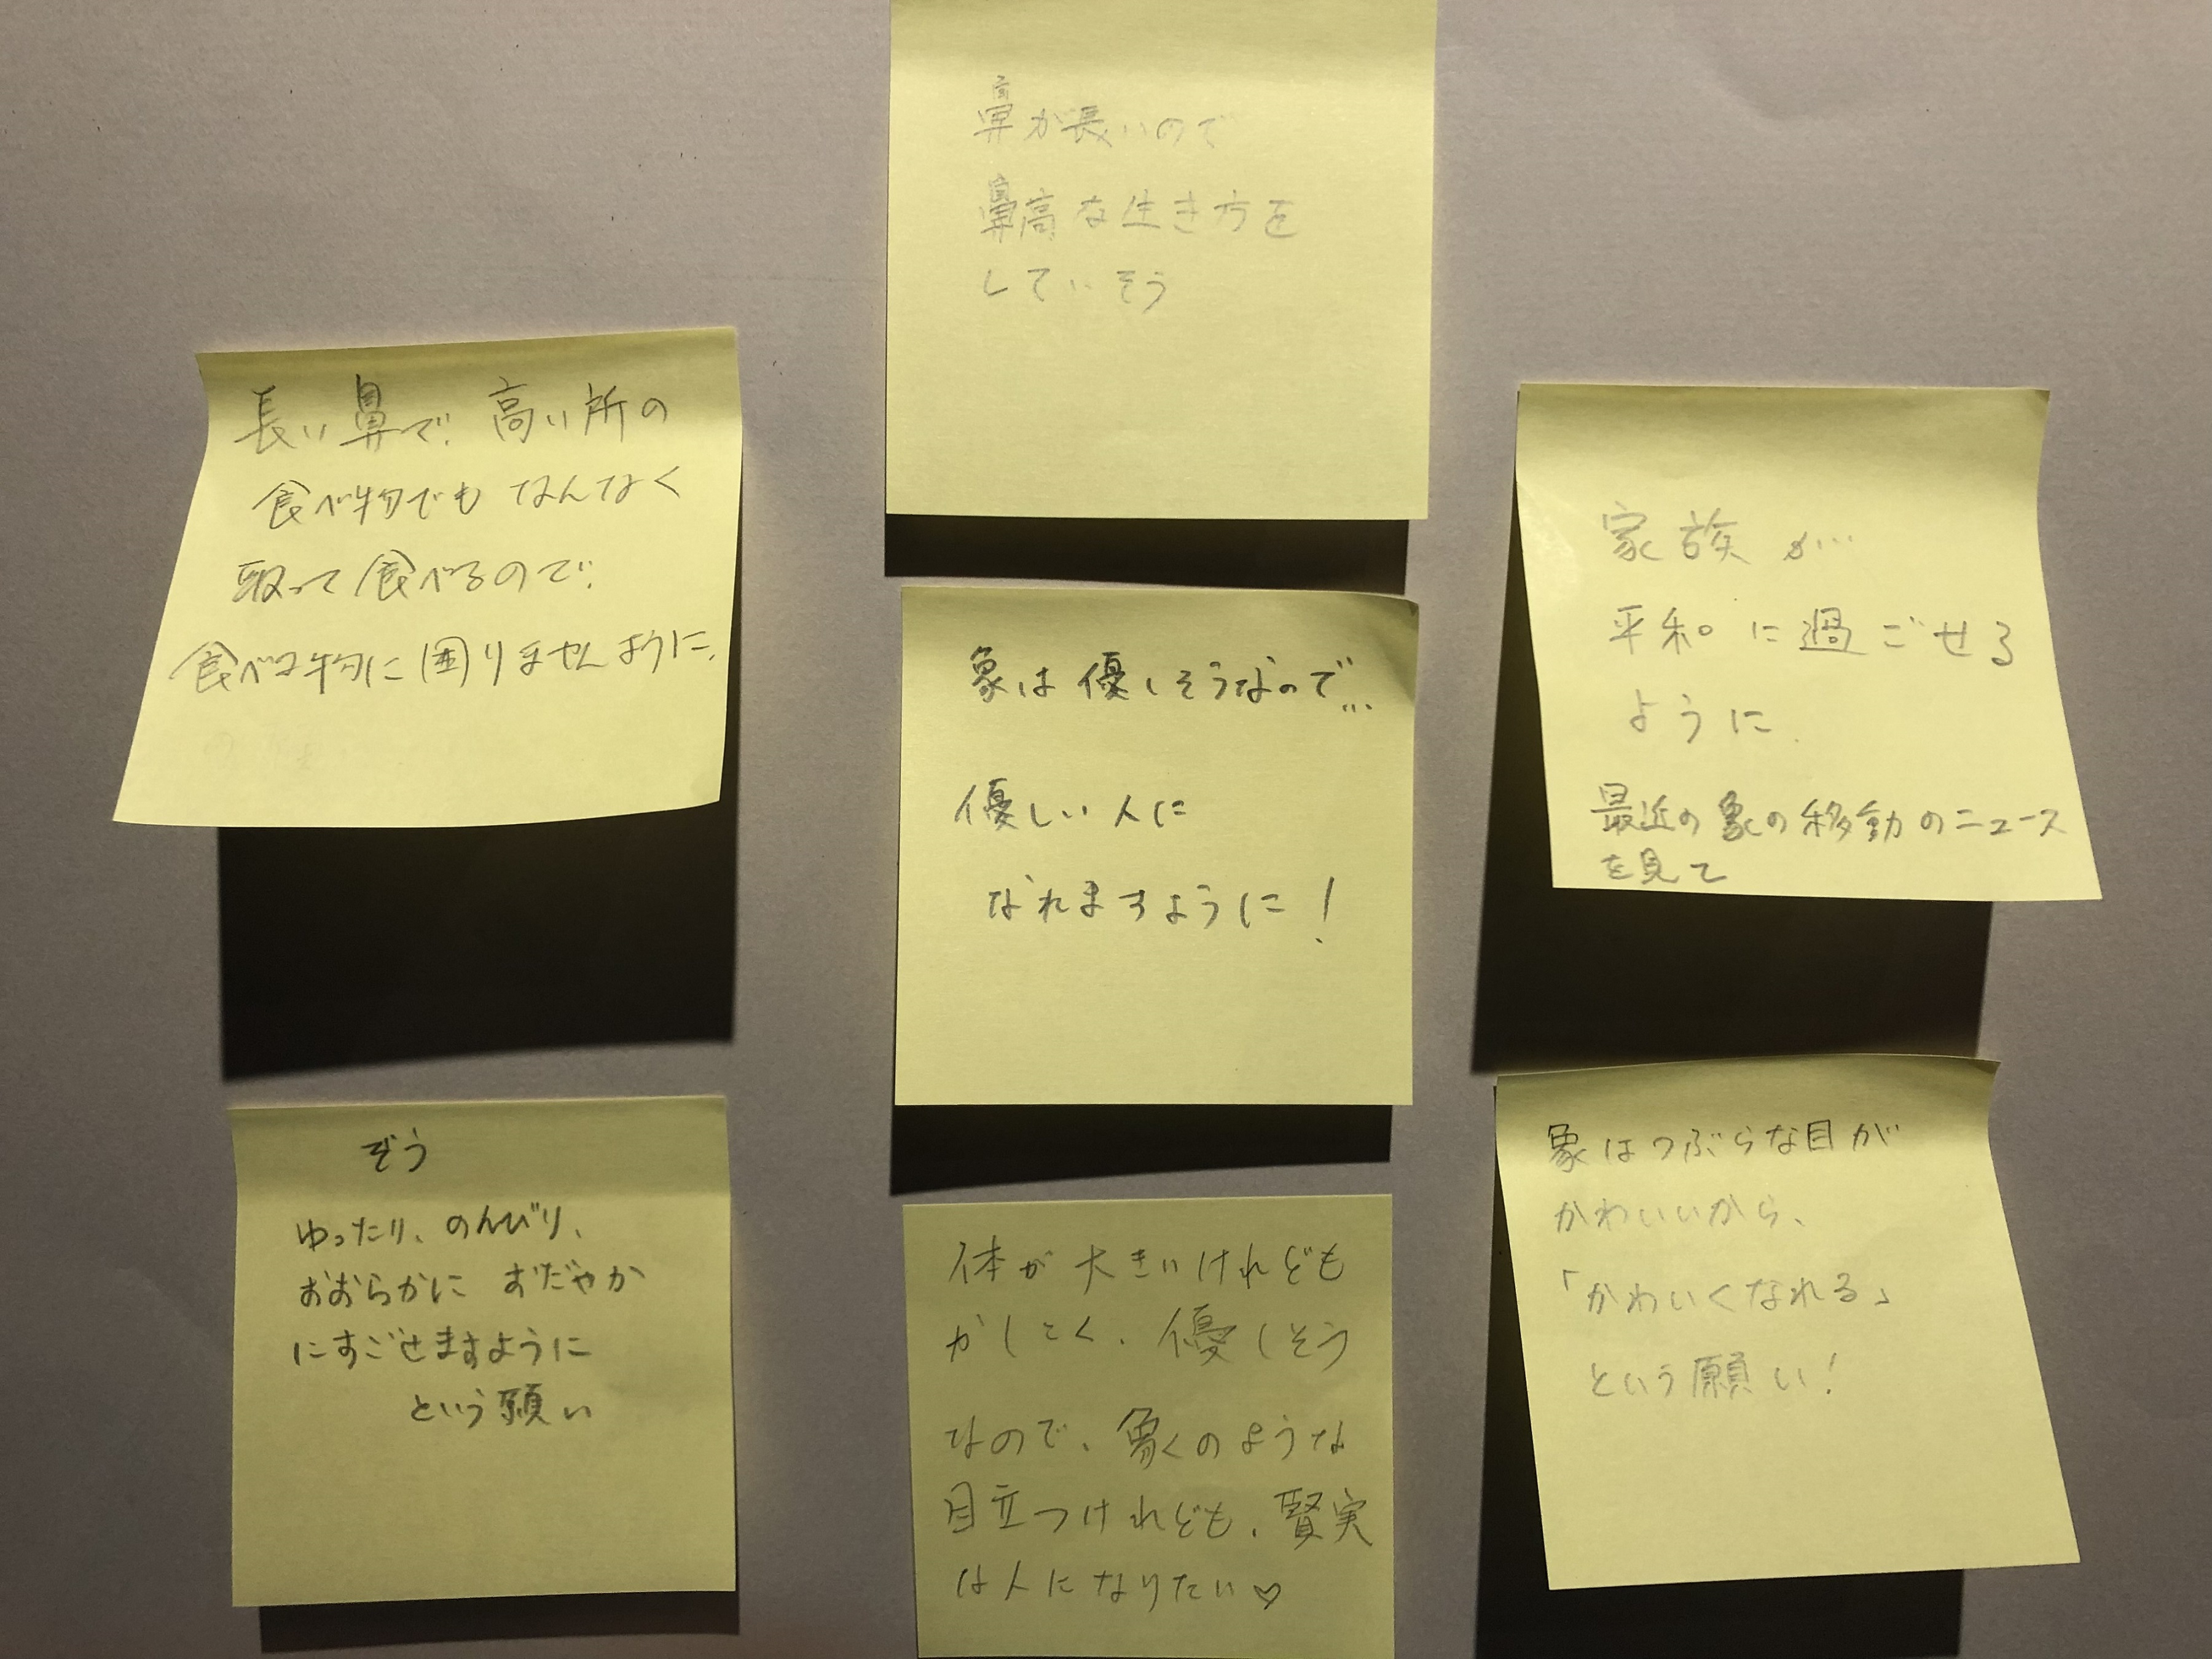 鼻が長いので
鼻高な生き方を
していそう
長い鼻で、高い所の
食べ物でもなんなく
取って食べるので、
食べ物に困りませんように、
象は優しそうなので…
優しい人に
なれますように！
家族が…
平和に過ごせる
ように、
最近の象の移動のニュース
を見て
ぞう
ゆったり、のんびり、
おおらかに おだやか
にすごせますように
という願い
体が大きいけれども
かしこく、優しそう
なので、象くのような
目立つけれども、賢実
は人になりたい♡
象はつぶらな目が
かわいいから、
「かわいくなれる」
という願い！